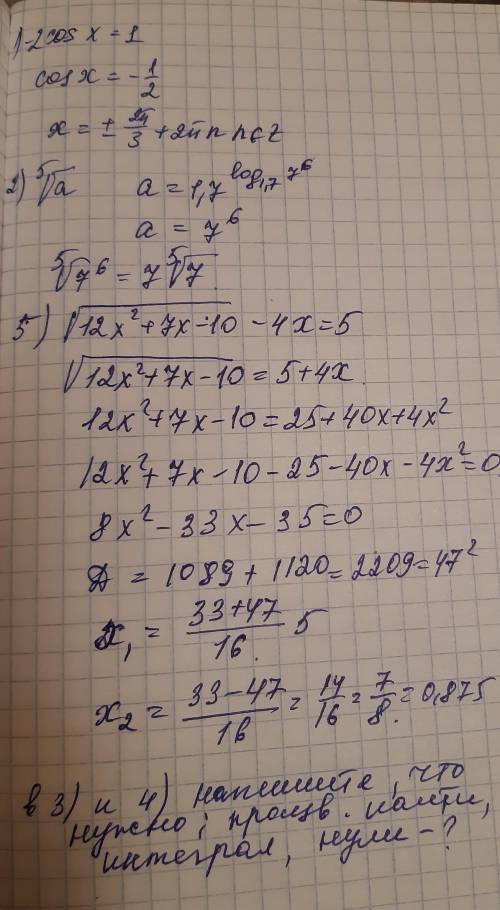 1) -2cos x = 1
cos x = -1/2
x = ± 2π/3 + 2πn n∈Z
2) ⁵√a a = 1,7^(log_{1,7} 7^6)
a = 7^6
⁵√7^6 = 7 ⁵√7
5) √(12x²+7x-10) - 4x = 5
√(12x²+7x-10) = 5+4x
12x²+7x-10 = 25+40x+4x²
12x²+7x-10-25-40x-4x²=0
8x²-33x-35=0
D = 1089+1120=2209=47²
x₁ = (33+47)/16 5
x₂ = (33-47)/16 = 14/16 = 7/8 = 0,875
в 3) и 4) напишите, что
нужно; произв. найти,
интеграл, нули - ?